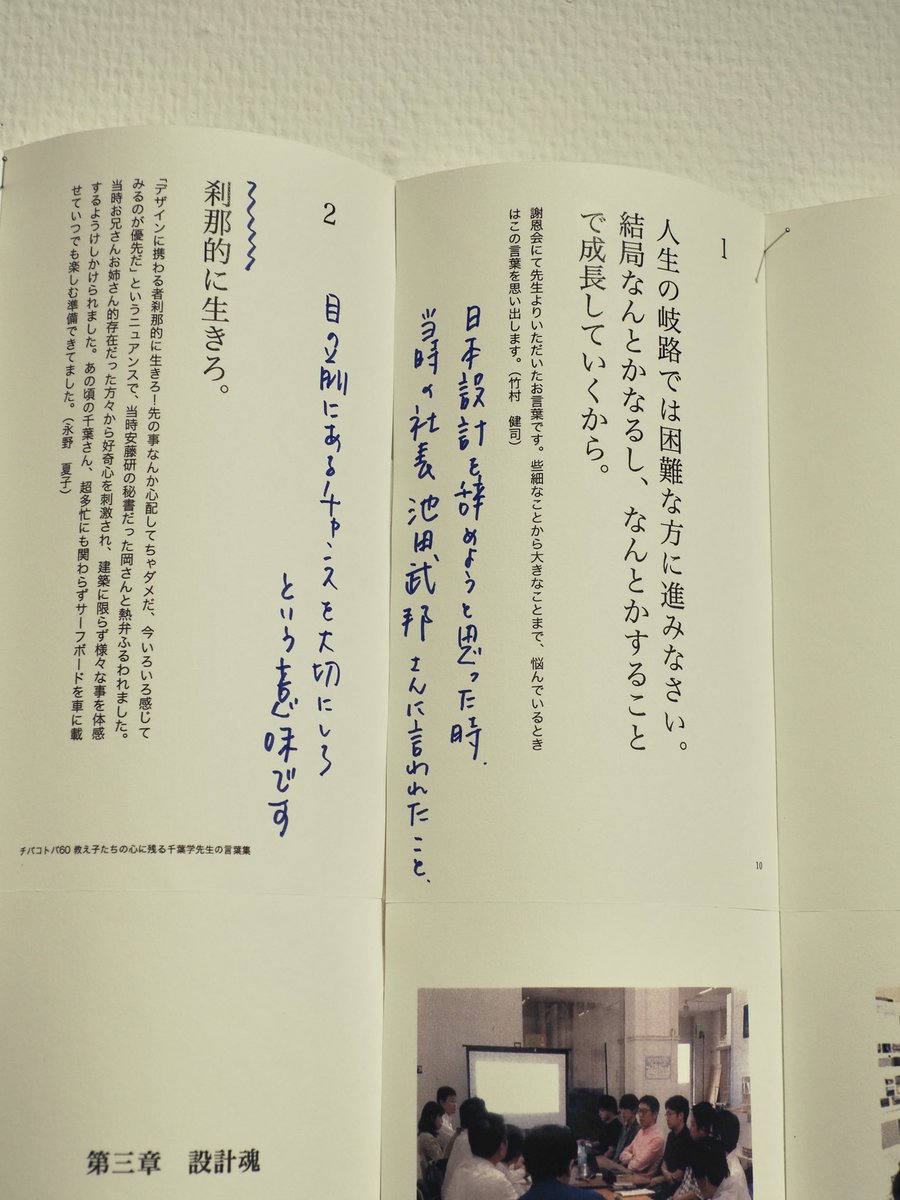 1
人生の岐路では困難な方に進みなさい。
結局なんとかなるし、なんとかすること
で成長していくから。
謝恩会にて先生よりいただいたお言葉です。些細なことから大きなことまで、悩んでいるとき
はこの言葉を思い出します。（竹村　健司）
日本設計を辞めようと思った時、
当時の社長 池田武邦さんに言われたこと、
10
2
目の前にあるチャンスを大切にしろ
という意味です
刹那的に生きろ。
「デザインに携わる者刹那的に生きろ！先の事なんか心配してちゃダメだ、今いろいろ感じて
みるのが優先だ」というニュアンスで、当時安藤研の秘書だった岡さんと熱弁ふるわれました。
当時お兄さんお姉さん的存在だった方々から好奇心を刺激され、建築に限らず様々な事を体感
するようけしかけられました。あの頃の千葉さん、超多忙にも関わらずサーフボードを車に載
せていつでも楽しむ準備できてました。（永野　夏子）
チバコトバ60 教え子たちの心に残る千葉学先生の言葉集
第三章　設計魂